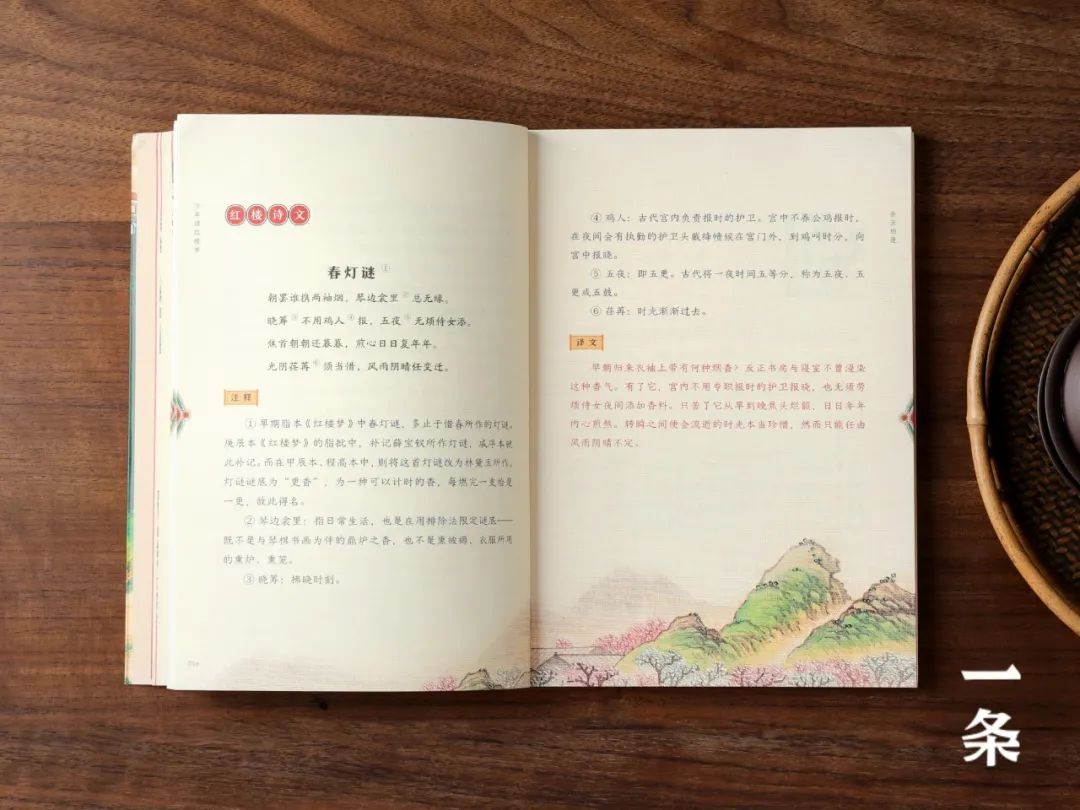 少年读红楼梦
红楼诗文
春灯谜①
朝罢谁携两袖烟,琴边衾里②总无缘。
晓筹③不用鸡人④报,五夜⑤无烦侍女添。
焦首朝朝还暮暮,煎心日日复年年。
光阴荏苒⑥须当惜,风雨阴晴任变迁。
注释
①早期脂本《红楼梦》中春灯谜,多止于惜春所作的灯谜。
庚辰本《红楼梦》的脂批中,补记薛宝钗所作灯谜,戚序本就
此补记。而在甲辰本、程高本中,则将这首灯谜改为林黛玉所作。
灯谜谜底为“更香”,为一种可以计时的香,每燃完一支恰是
一更,故此得名。
②琴边衾里:指日常生活,也是在用排除法限定谜底——
既不是与琴棋书画为伴的鼎炉之香,也不是熏被褥、衣服所用
的熏炉、熏笼。
③晓筹:拂晓时刻。
④鸡人:古代宫内负责报时的护卫。宫中不养公鸡报时,
在夜间会有执勤的护卫头戴绛帻候在宫门外,到鸡叫时分,向
宫中报晓。
⑤五夜:即五更。古代将一夜时间五等分,称为五夜、五
更或五鼓。
⑥荏苒:时光渐渐过去。
译文
早朝归来衣袖上带有何种烟香?反正书房与寝室不曾浸染
这种香气。有了它,宫内不用专职报时的护卫报晓,也无须劳
烦侍女夜间添加香料。只苦了它从早到晚焦头烂额,日日年年
内心煎熬。转瞬之间便会流逝的时光本当珍惜,然而只能任由
风雨阴晴不定。
一条